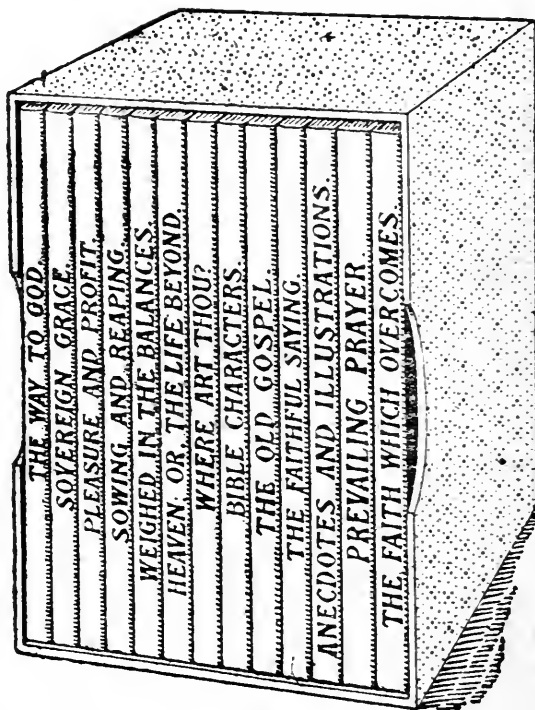 THE WAY TO GOD.
SOVEREIGN GRACE.
PLEASURE AND PROFIT.
SOWING AND REAPING.
WEIGHED IN THE BALANCES.
HEAVEN, OR, THE LIFE BEYOND.
WHERE ART THOU?
BIBLE CHARACTERS.
THE OLD GOSPEL.
THE FAITHFUL SAYING.
ANECDOTES AND ILLUSTRATIONS.
PREVAILING PRAYER
THE FAITH WHICH OVERCOMES.